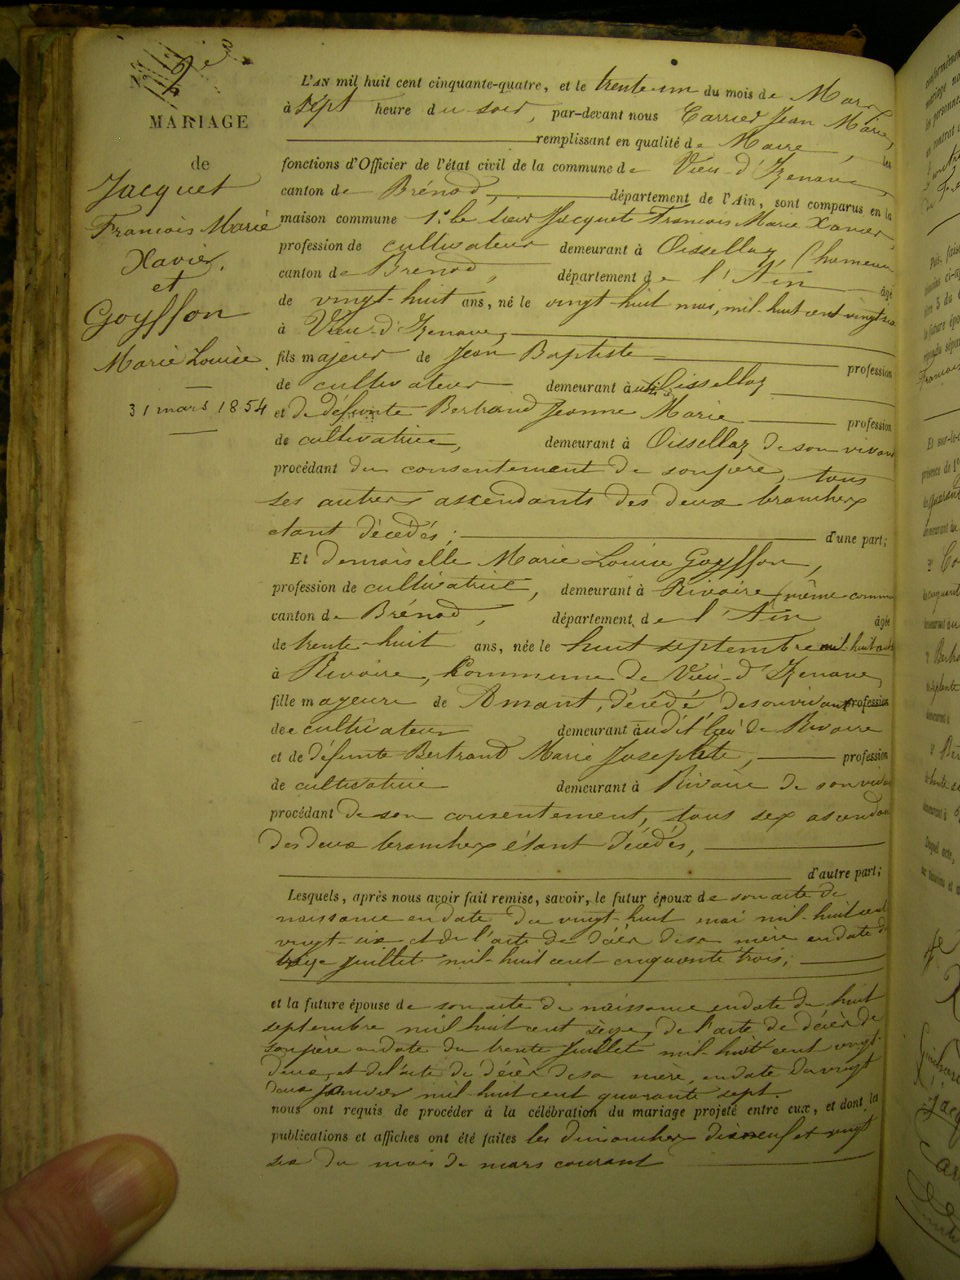 N.° 2e
MARIAGE
de
Jacquet
Francois Marie
Xavier.
et
Goyffon
Marie Louise
31 mars 1854
L'AN mil huit cent cinquante-quatre, et le trente-un du mois de Mars
à sept heure du soir, par-devant nous Carrier Jean Marie,
remplissant en qualité de Maire, les
fonctions d'Officier de l'état civil de la commune de Vieu-d'Izenave,
canton de Brénod, département de l'Ain, sont comparus en la
maison commune 1.° le sieur Jacquet Francois Marie Xavier,
profession de cultivateur demeurant à Oissellaz
canton de Brénod, département de l'Ain âgé
de vingt-huit ans, né le vingt huit mai, mil huit cent vingt six
à Vieu-d'Izenave,
fils majeur de Jean Baptiste profession
de cultivateur demeurant à Oissellaz
et de défunte Bertrand Jeanne Marie profession
de cultivatrice, demeurant à Oissellaz de son vivant
procédant du consentement de son père, tous
ses autres ascendants des deux branches
etant décédés; d'une part;
Et demoiselle Marie Louise Goyffon,
profession de cultivatrice, demeurant à Rivoire, même commune
canton de Brénod, département de l'Ain âgée
de trente-huit ans, née le huit septembre mil-huit cent
à Rivoire, Commune de Vieu-d'Izenave,
fille majeure de Amant, décédé de son vivant profession
de cultivateur demeurant audit lieu de Rivoire
et de défunte Bertrand Marie Josephte, profession
de cultivatrice demeurant à Rivoire de son vivant
procédant de son consentement, tous ses ascendans
des deux branches étant décédés,
d'autre part;
Lesquels, après nous avoir fait remise, savoir, le futur époux de son acte de
naissance en date du vingt-huit mai mil-huit cent
vingt-six et de l'acte de décès de sa mère en date du
treize juillet mil-huit cent cinquante trois;
et la future épouse de son acte de naissance en date du huit
septembre mil huit cent seize, de l'acte de décès de
son père en date du trente juillet mil-huit cent vingt
deux, et de l'acte de décès de sa mère, en date du vingt
deux janvier mil-huit cent quarante sept.
nous ont requis de procéder à la célébration du mariage projeté entre eux, et dont les
publications et affiches ont été faites les dimanches dixneuf et vingt
six du mois de mars courant